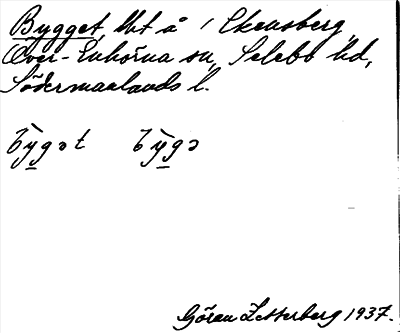 Bygget, tbt å / Ekensberg,
Över-Enhörna sn, Selebo hd,
Södermanlands l.
bỳgət bỳgə
Göran Zetterberg 1937.